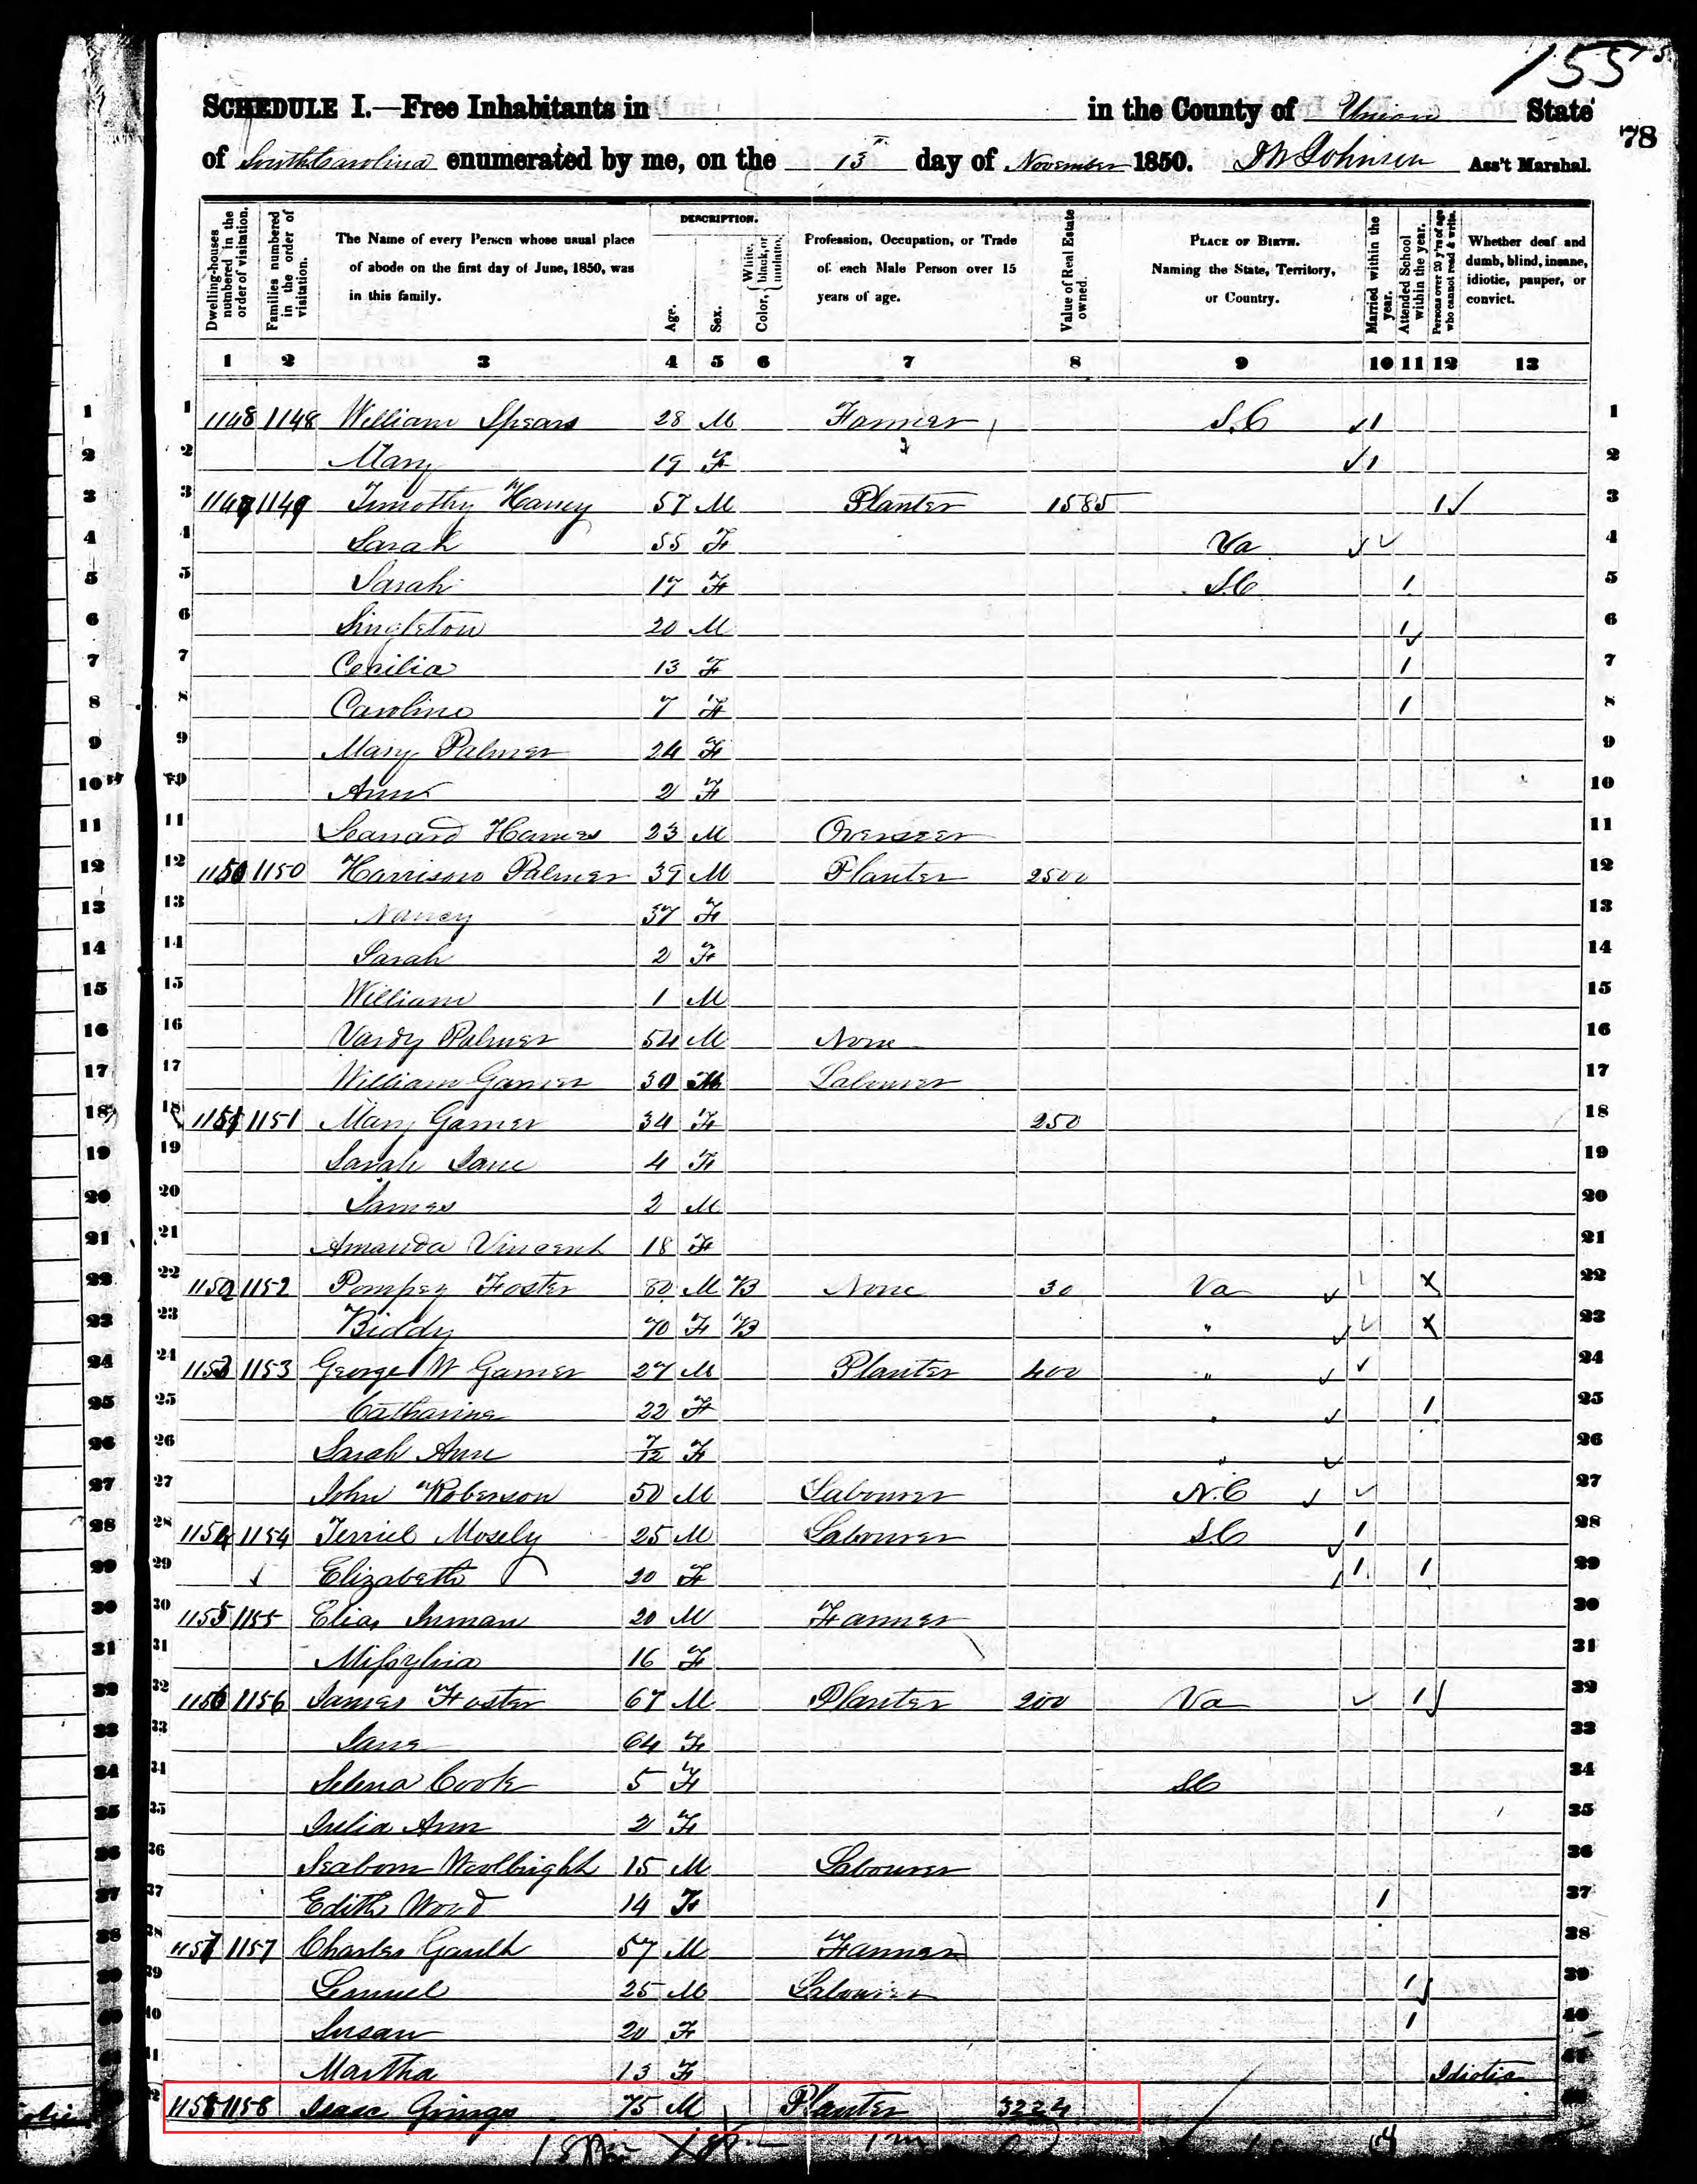 155
78
SCHEDULE I.—Free Inhabitants in in the County of Union State
of South Carolina enumerated by me, on the 13th day of November 1850. J W Johnson Ass't Marshal.
Dwelling-houses numbered in the order of visitation.
Families numbered in the order of visitation.
The Name of every Person whose usual place of abode on the first day of June, 1850, was in this family.
DESCRIPTION.
Age.
Sex.
Color, White, black, or mulatto.
Profession, Occupation, or Trade of each Male Person over 15 years of age.
Value of Real Estate owned.
PLACE OF BIRTH. Naming the State, Territory, or Country.
Married within the year.
Attended School within the year.
Persons over 20 y'rs of age who cannot read & write.
Whether deaf and dumb, blind, insane, idiotic, pauper, or convict.
1 2 3 4 5 6 7 8 9 10 11 12 13
1 1148 1148 William Spears 28 M Farmer S.C 1 1
2 Mary 19 F 1 2
3 1149 1149 Timothy Haney 57 M Planter 1585 1 3
4 Sarah 55 F Va 4
5 Sarah 17 F S.C 1 5
6 Singleton 20 M 1 6
7 Cecilia 13 F 1 7
8 Caroline 7 F 1 8
9 Mary Palmer 24 F 9
10 Ann 2 F 10
11 Leanard Hames 23 M Overseer 11
12 1150 1150 Harrison Palmer 39 M Planter 2500 12
13 Nancy 37 F 13
14 Sarah 2 F 14
15 William 1 M 15
16 Vardy Palmer 54 M None 16
17 William Garner 30 M Labourer 17
18 1151 1151 Mary Garner 34 F 250 18
19 Sarah Jane 4 F 19
20 James 2 M 20
21 Amanda Vincent 18 F 21
22 1152 1152 Pompey Foster 80 M B None 30 Va X 22
23 Biddy 70 F B " X 23
24 1153 1153 George W Garner 27 M Planter 400 " 24
25 Catharine 22 F " 1 25
26 Sarah Ann 7/12 F " 26
27 John Roberson 50 M Labourer N.C 27
28 1154 1154 Terriel Mosely 25 M Labourer S.C 1 28
29 Elizabeth 20 F 1 1 29
30 1155 1155 Elias Inman 20 M Farmer 30
31 16 F 31
32 1156 1156 James Foster 67 M Planter 200 Va 1 32
33 Jane 64 F 33
34 Selena Cook 5 F SC 34
35 Julia Ann 2 F 35
36 Seaborn Woolbright 15 M Labourer 36
37 Edith Word 14 F 1 37
38 1157 1157 Charles Gault 57 M Farmer 38
39 Lemuel 25 M Labourer 1 39
40 Susan 20 F 1 40
41 Martha 13 F Idiotic 41
1158 1158 Isaac Gringo 75 M Planter 3224